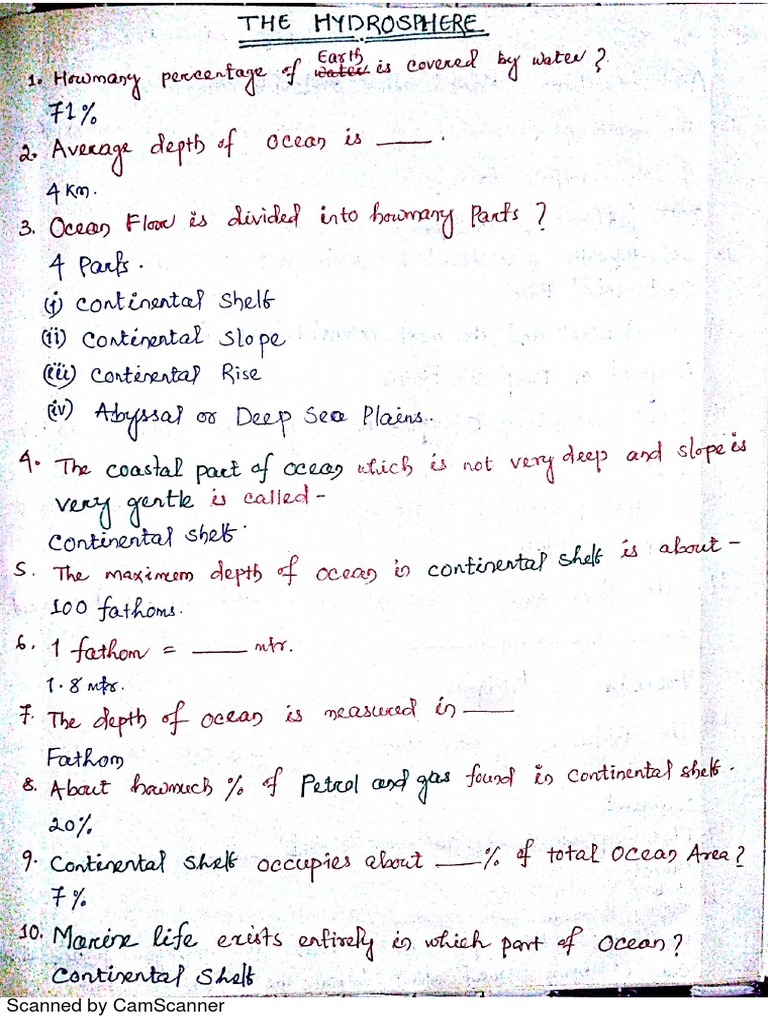 THE HYDROSPHERE
1. Howmany percentage of Earth is covered by water?
71%
2. Average depth of ocean is ____.
4 Km.
3. Ocean Floor is divided into howmany Parts?
4 Parts.
(i) Continental Shelf
(ii) Continental Slope
(iii) Continental Rise
(iv) Abyssal or Deep Sea Plains.
4. The coastal part of ocean which is not very deep and slope is
very gentle is called-
Continental shelf.
5. The maximum depth of ocean in continental shelf is about -
100 fathoms.
6. 1 fathom = ____ mtr.
1.8 mtr.
7. The depth of ocean is measured in ____
Fathom
8. About howmuch % of Petrol and gas found in Continental shelf.
20%
9. Continental Shelf occupies about ___% of total Ocean Area?
7%
10. Marine life exists entirely in which part of Ocean?
Continental Shelf
Scanned by CamScanner